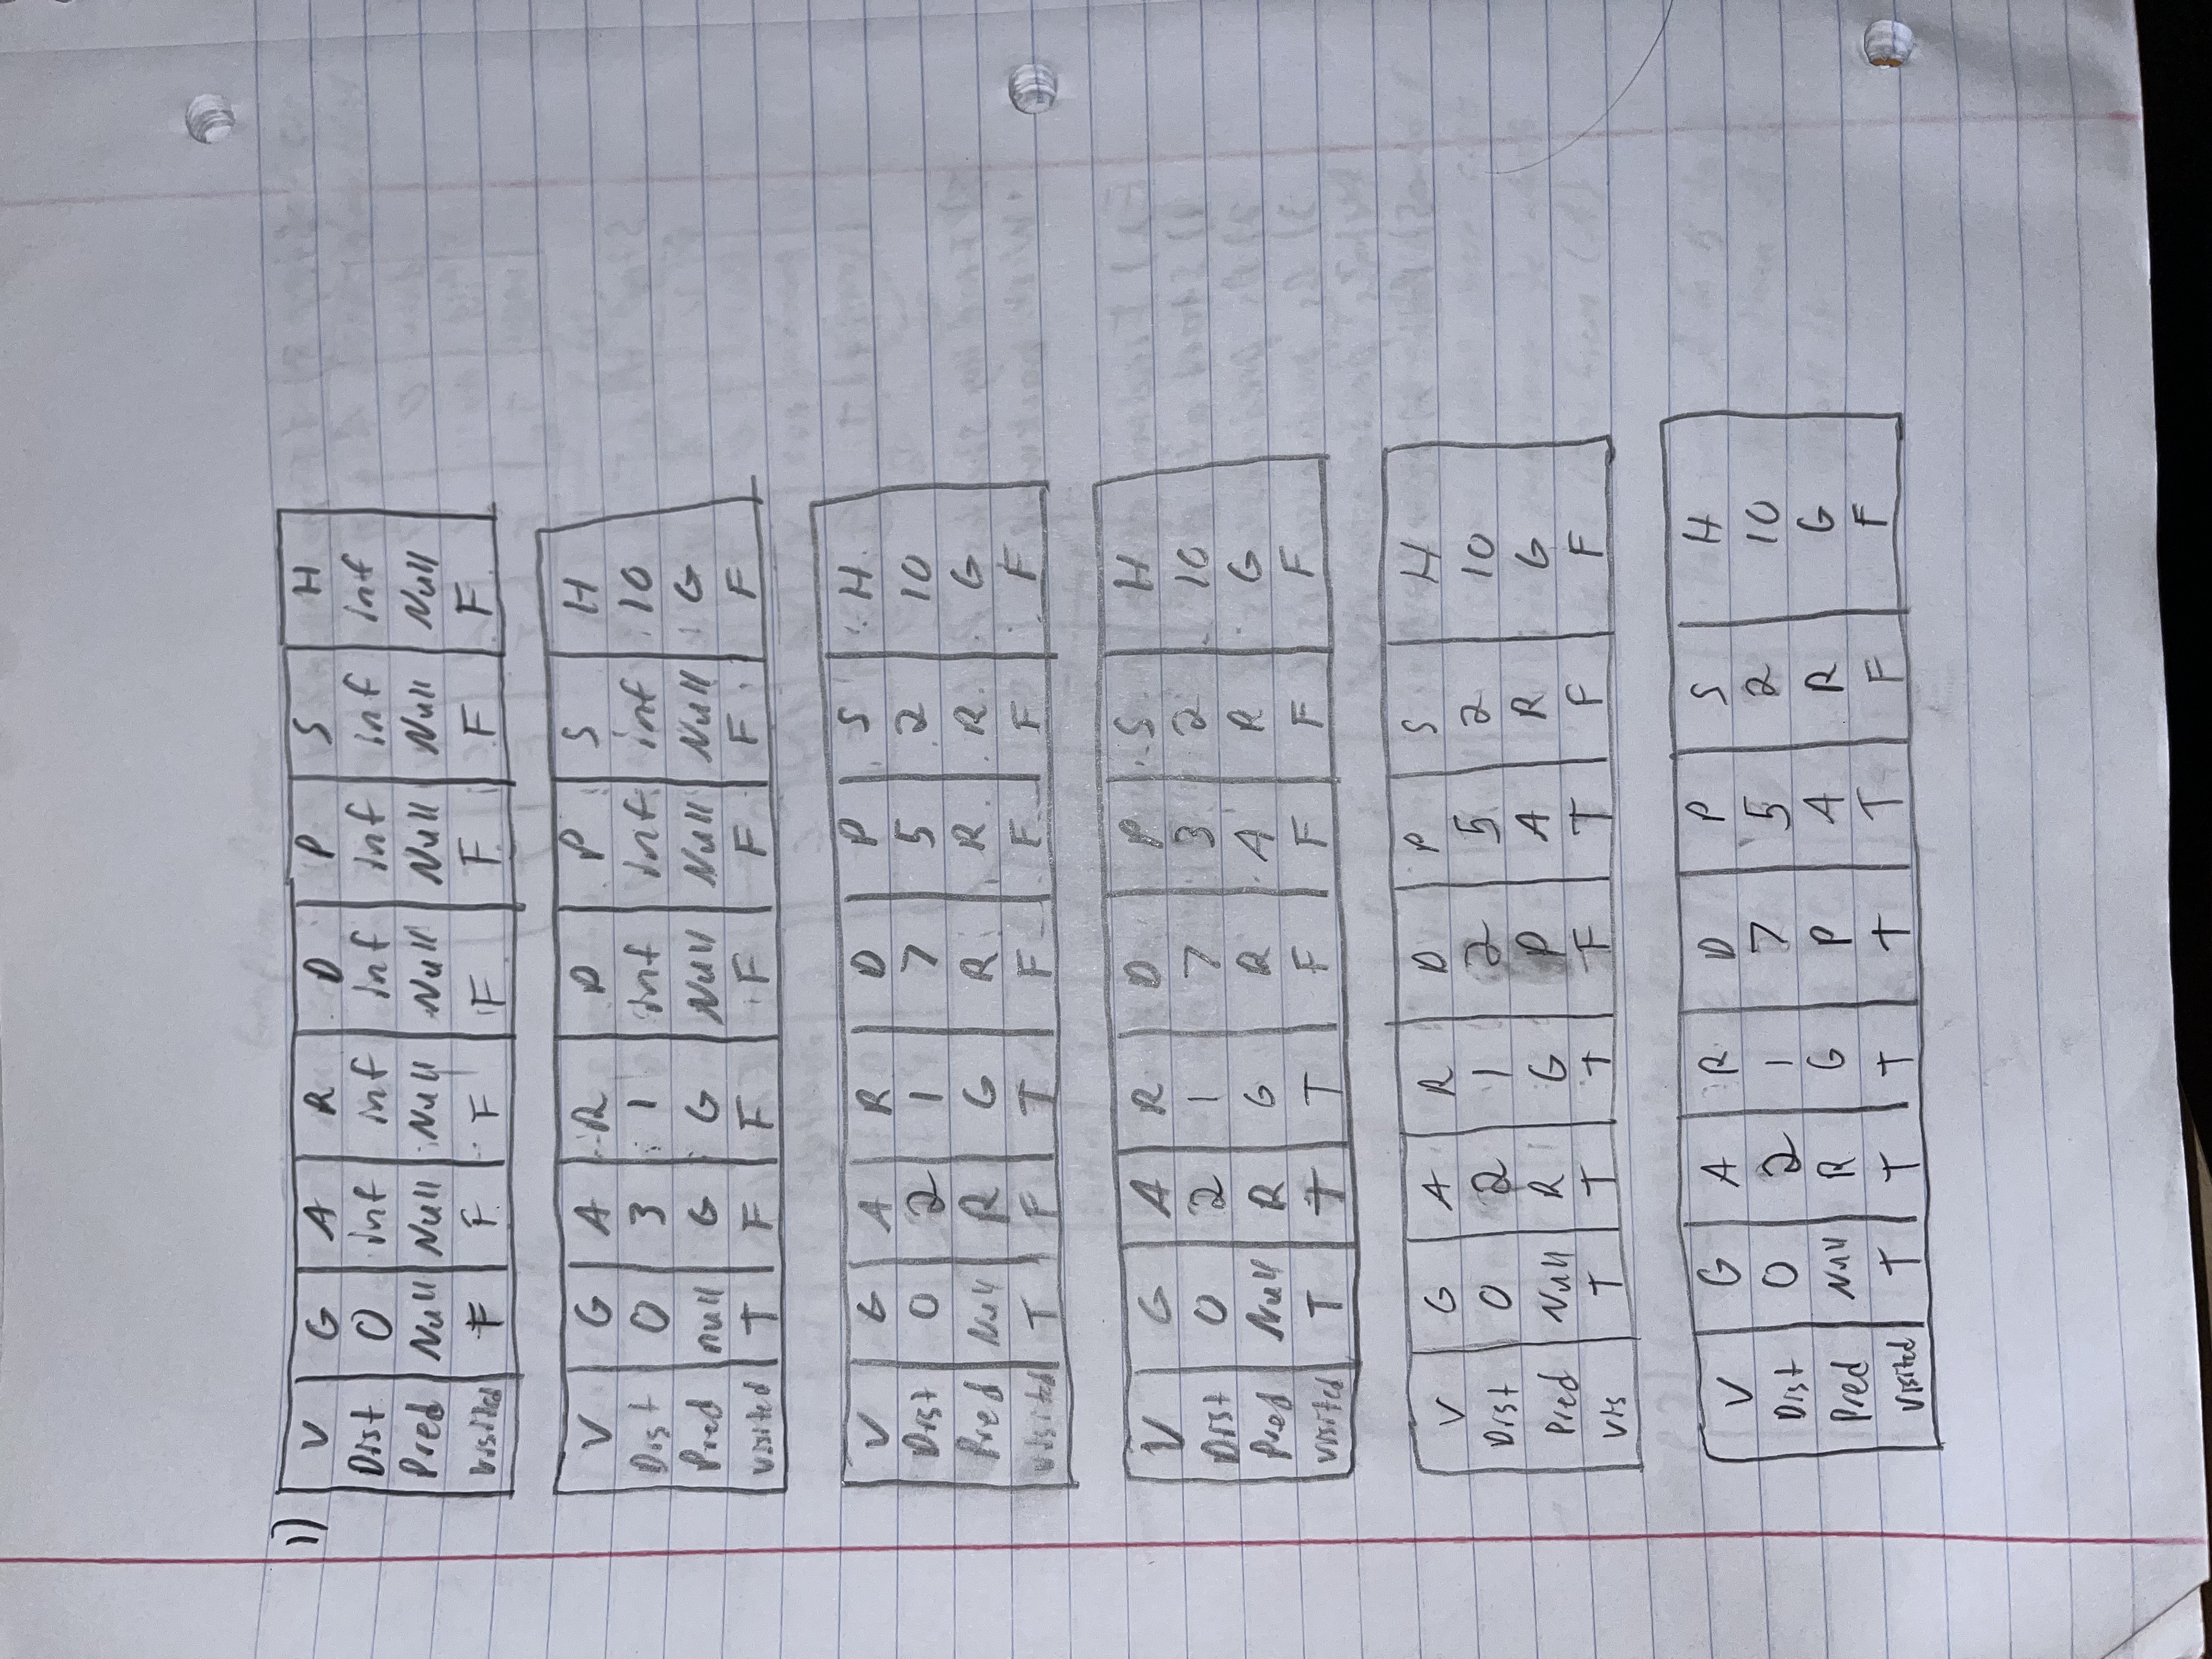 1)
V G A R D P S H
Dist 0 inf inf inf inf inf inf
Pred Null Null Null Null Null Null Null
Visited F F F F F F F
V G A R D P S H
Dist 0 3 1 inf inf inf 10
Pred null G G Null Null Null G
visited T F F F F F F
V G A R D P S H
Dist 0 2 1 7 5 2 10
Pred Null R G R R R G
visited T F T F F F F
V G A R D P S H
Dist 0 2 1 7 3 2 10
Pred Null R G R A R G
visited T T T F F F F
V G A R D P S H
Dist 0 2 1 2 5 2 10
Pred Null R G P A R G
Vis T T T F T F F
V G A R D P S H
Dist 0 2 1 7 5 2 10
Pred Null R G P A R G
Visited T T T T T F F